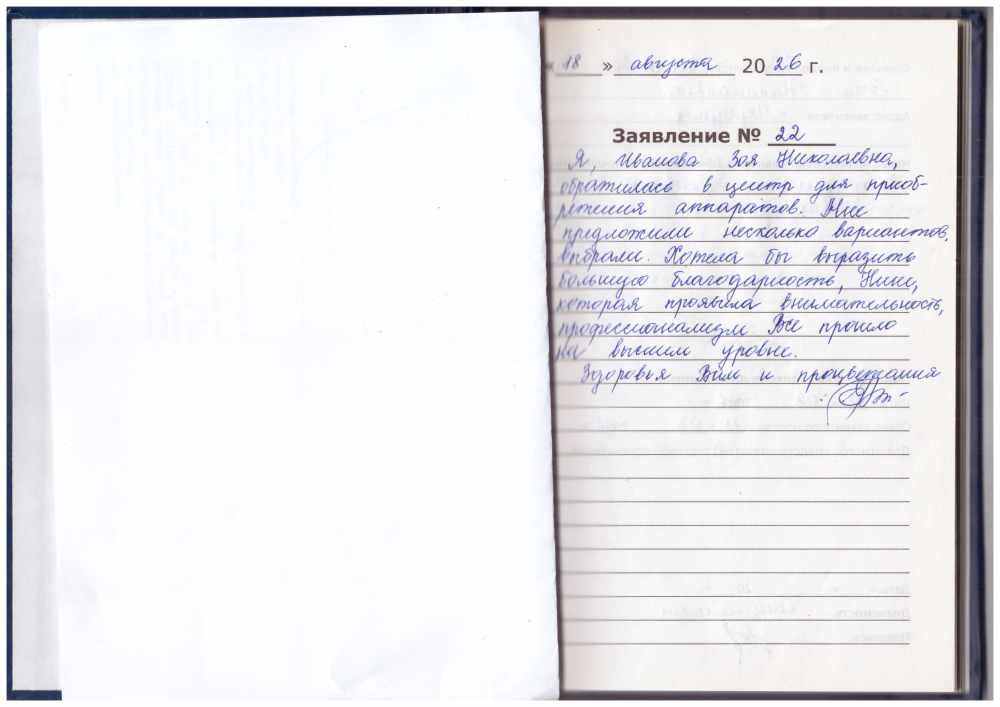 «18» августа 2026 г.
Заявление № 22
Я, Иванова Зоя Николаевна,
обратилась в центр для приоб-
ретения аппаратов. Мне
предложили несколько вариантов,
выбрали. Хотела бы выразить
большую благодарность, Нине,
которая проявила внимательность,
профессионализм Все прошло
на высшем уровне.
Здоровья Вам и процветания